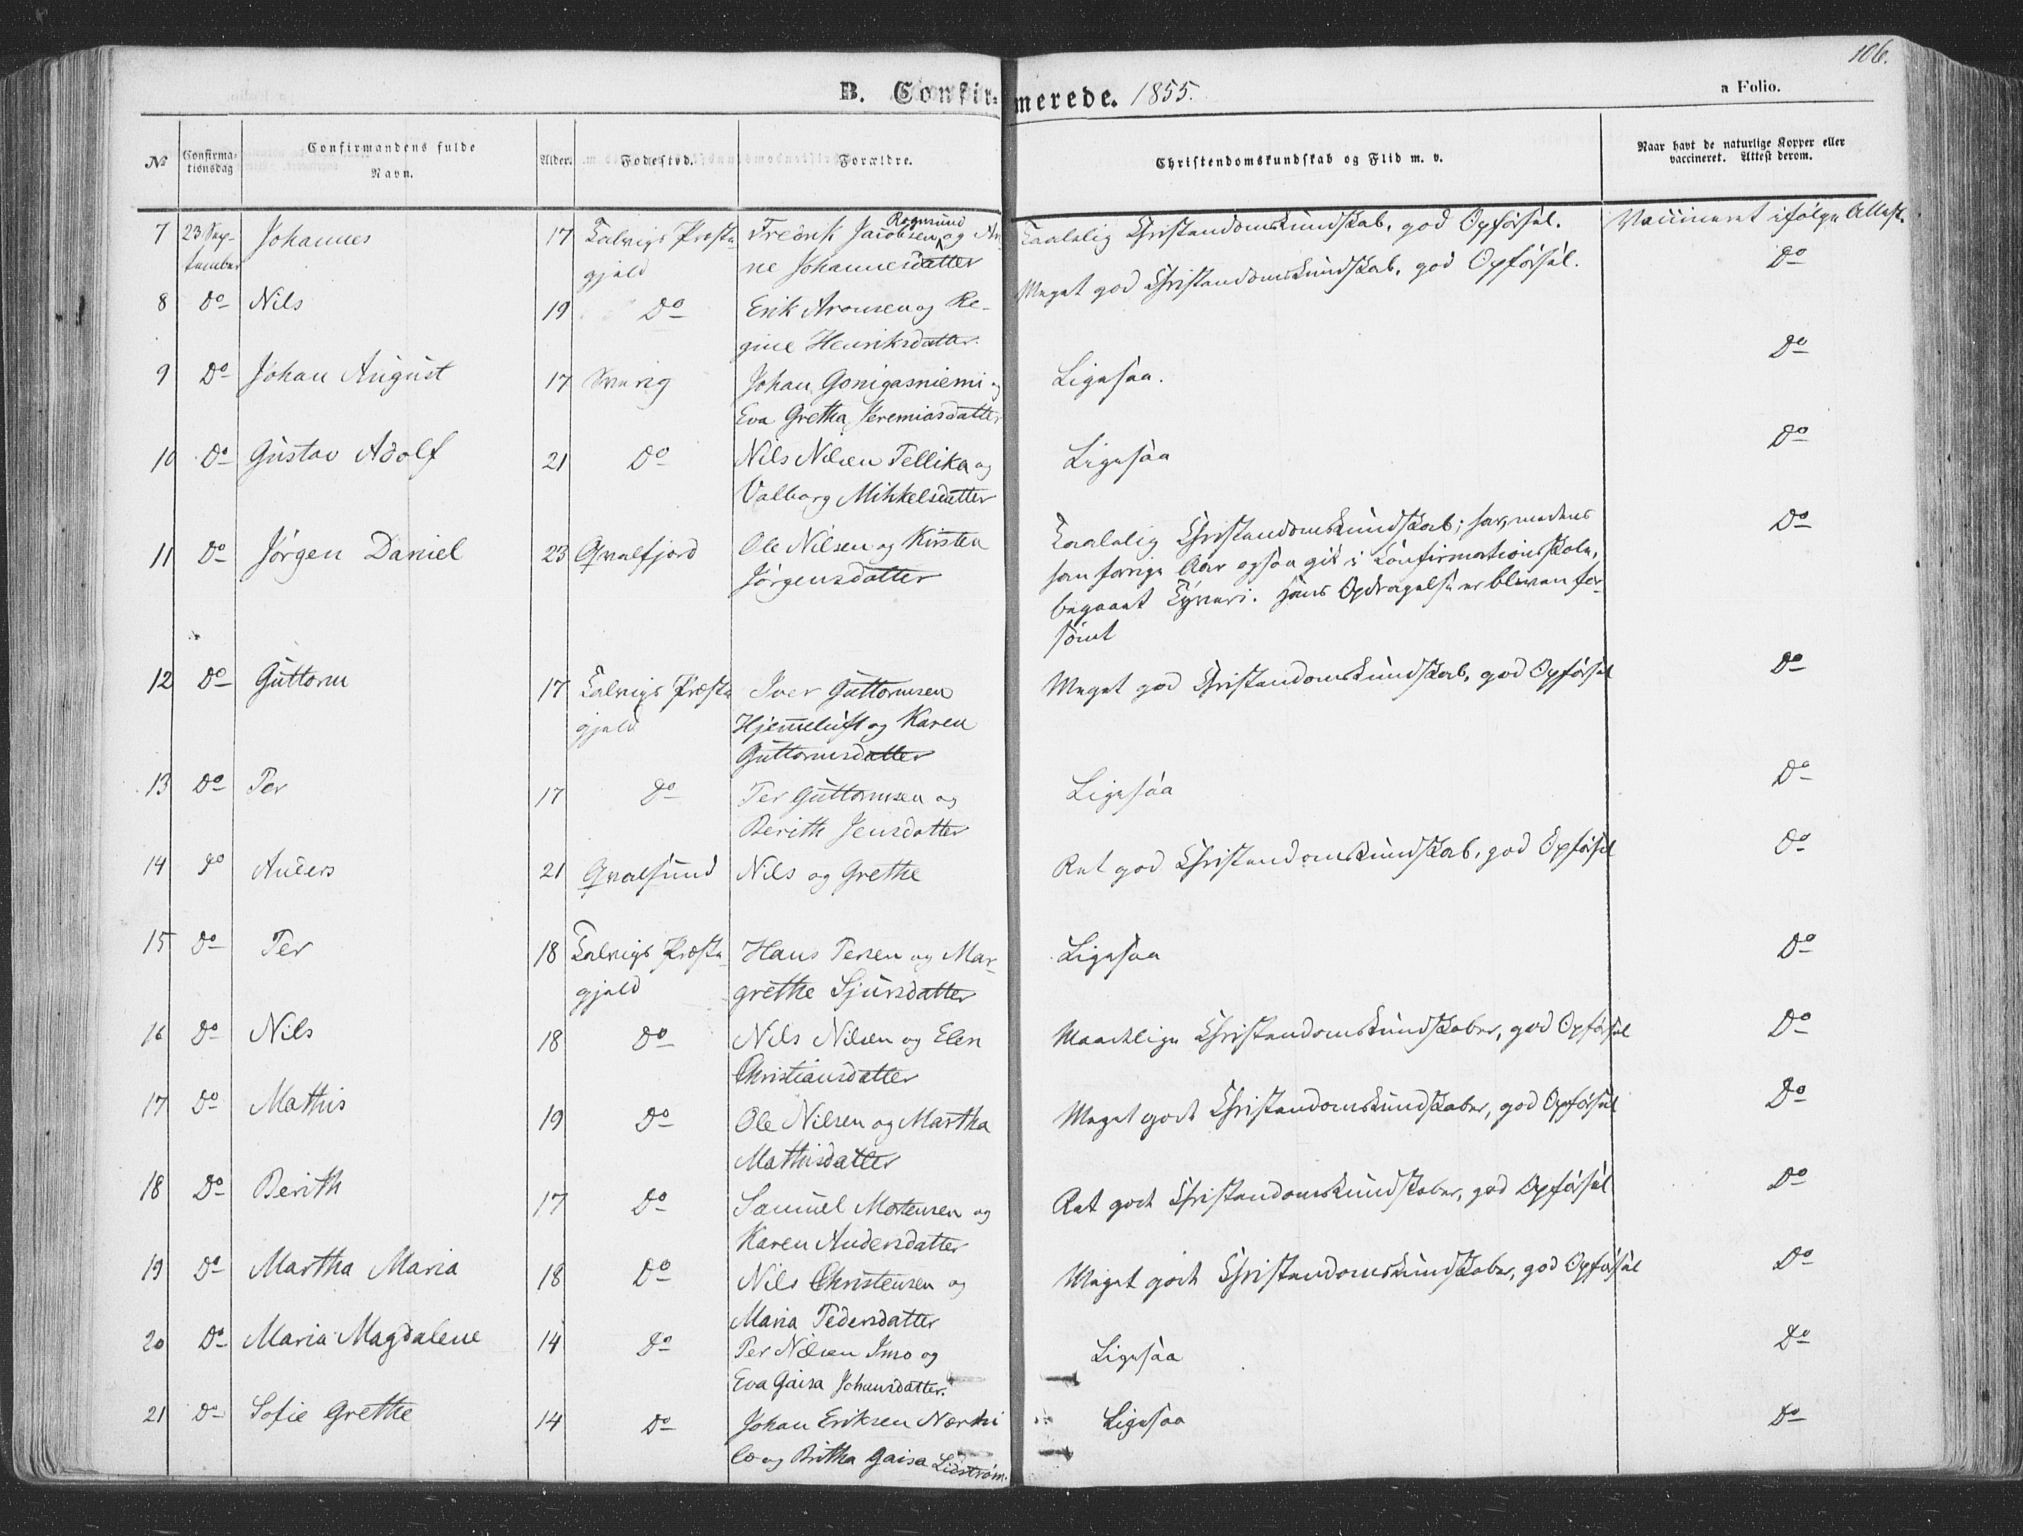 106.
B. Confirmerede. 1855.
a Folio.
No Confirmationsdag Confirmandens fulde Navn. Alder. Fødested. Forældre. Christendomskundskab og Flid m. v. Naar havt de naturlige Kopper eller vaccineret. Attest derom.
7 23 Sep- Johannes 17 Talvigs Præste Fredrik Jacobsen Rognsund og An- Taalelig Christendomskundskab, god Opførsel. Vaccineret ifølge Attest.
tember gjeld ne Johannesdatter
8 Do Nils 19 Do Erik Aronsen og Re- Meget god Christendomskundskab, god Opførsel. Do
gine Henriksdatter.
9 Do Johan August 17 Sverig Johan Gonigasniemi og Ligesaa. Do
Eva Gretha Jeremiasdatter
10 Do Gustav Adolf 21 Do Nils Nilsen Pellika og Ligesaa Do
Valborg Mihkelsdatter
11 Do Jørgen Daniel 23 Qvalfjord Ole Nilsen og Kirsten Taalelig Christendomskundskab; har, medens Do
Jørgensdatter han forrige Aar ogsaa gik i Confirmationsskole,
begaaet Tyveri. Hans Opdragelse er bleven for-
sømt
12 Do Guttorm 17 Talvigs Præste Iver Guttormsen Meget god Christendomskundskab, god Opførsel Do
gjeld Hjemmeluft og Karen
Guttormsdatter
13 Do Per 17 Do Per Guttormsen og Ligesaa Do
Berith Jensdatter
14 Do Anders 21 Qvalsund Nils og Grethe Ret god Christendomskundskab, god Opførsel Do
15 Do Per 18 Talvigs Præste Hans Persen og Mar- Ligesaa Do
gjeld grethe Sjursdatter
16 Do Nils 18 Do Nils Nilsen og Elen Maadelige Christendomskundskaber, god Opførsel Do
Christiansdatter
17 Do Mathis 19 Do Ole Nilsen og Martha Meget gode Christendomskundskaber, god Opførsel Do
Mathisdatter
18 Do Berith 17 Do Samuel Mortensen og Ret gode Christendomskundskaber, god Opførsel Do
Karen Andersdatter
19 Do Martha Maria 18 Do Nils Christensen og Meget gode Christendomskundskaber, god Opførsel Do
Maria Pedersdatter
20 Do Maria Magdalene 14 Do Per Nilsen Imo og Ligesaa Do
Eva Gaisa Johansdatter.
21 Do Sofie Grethe 14 Do Johan Eriksen Nærki Ligesaa Do
lo og Britha Gaisa Lidstrøm.